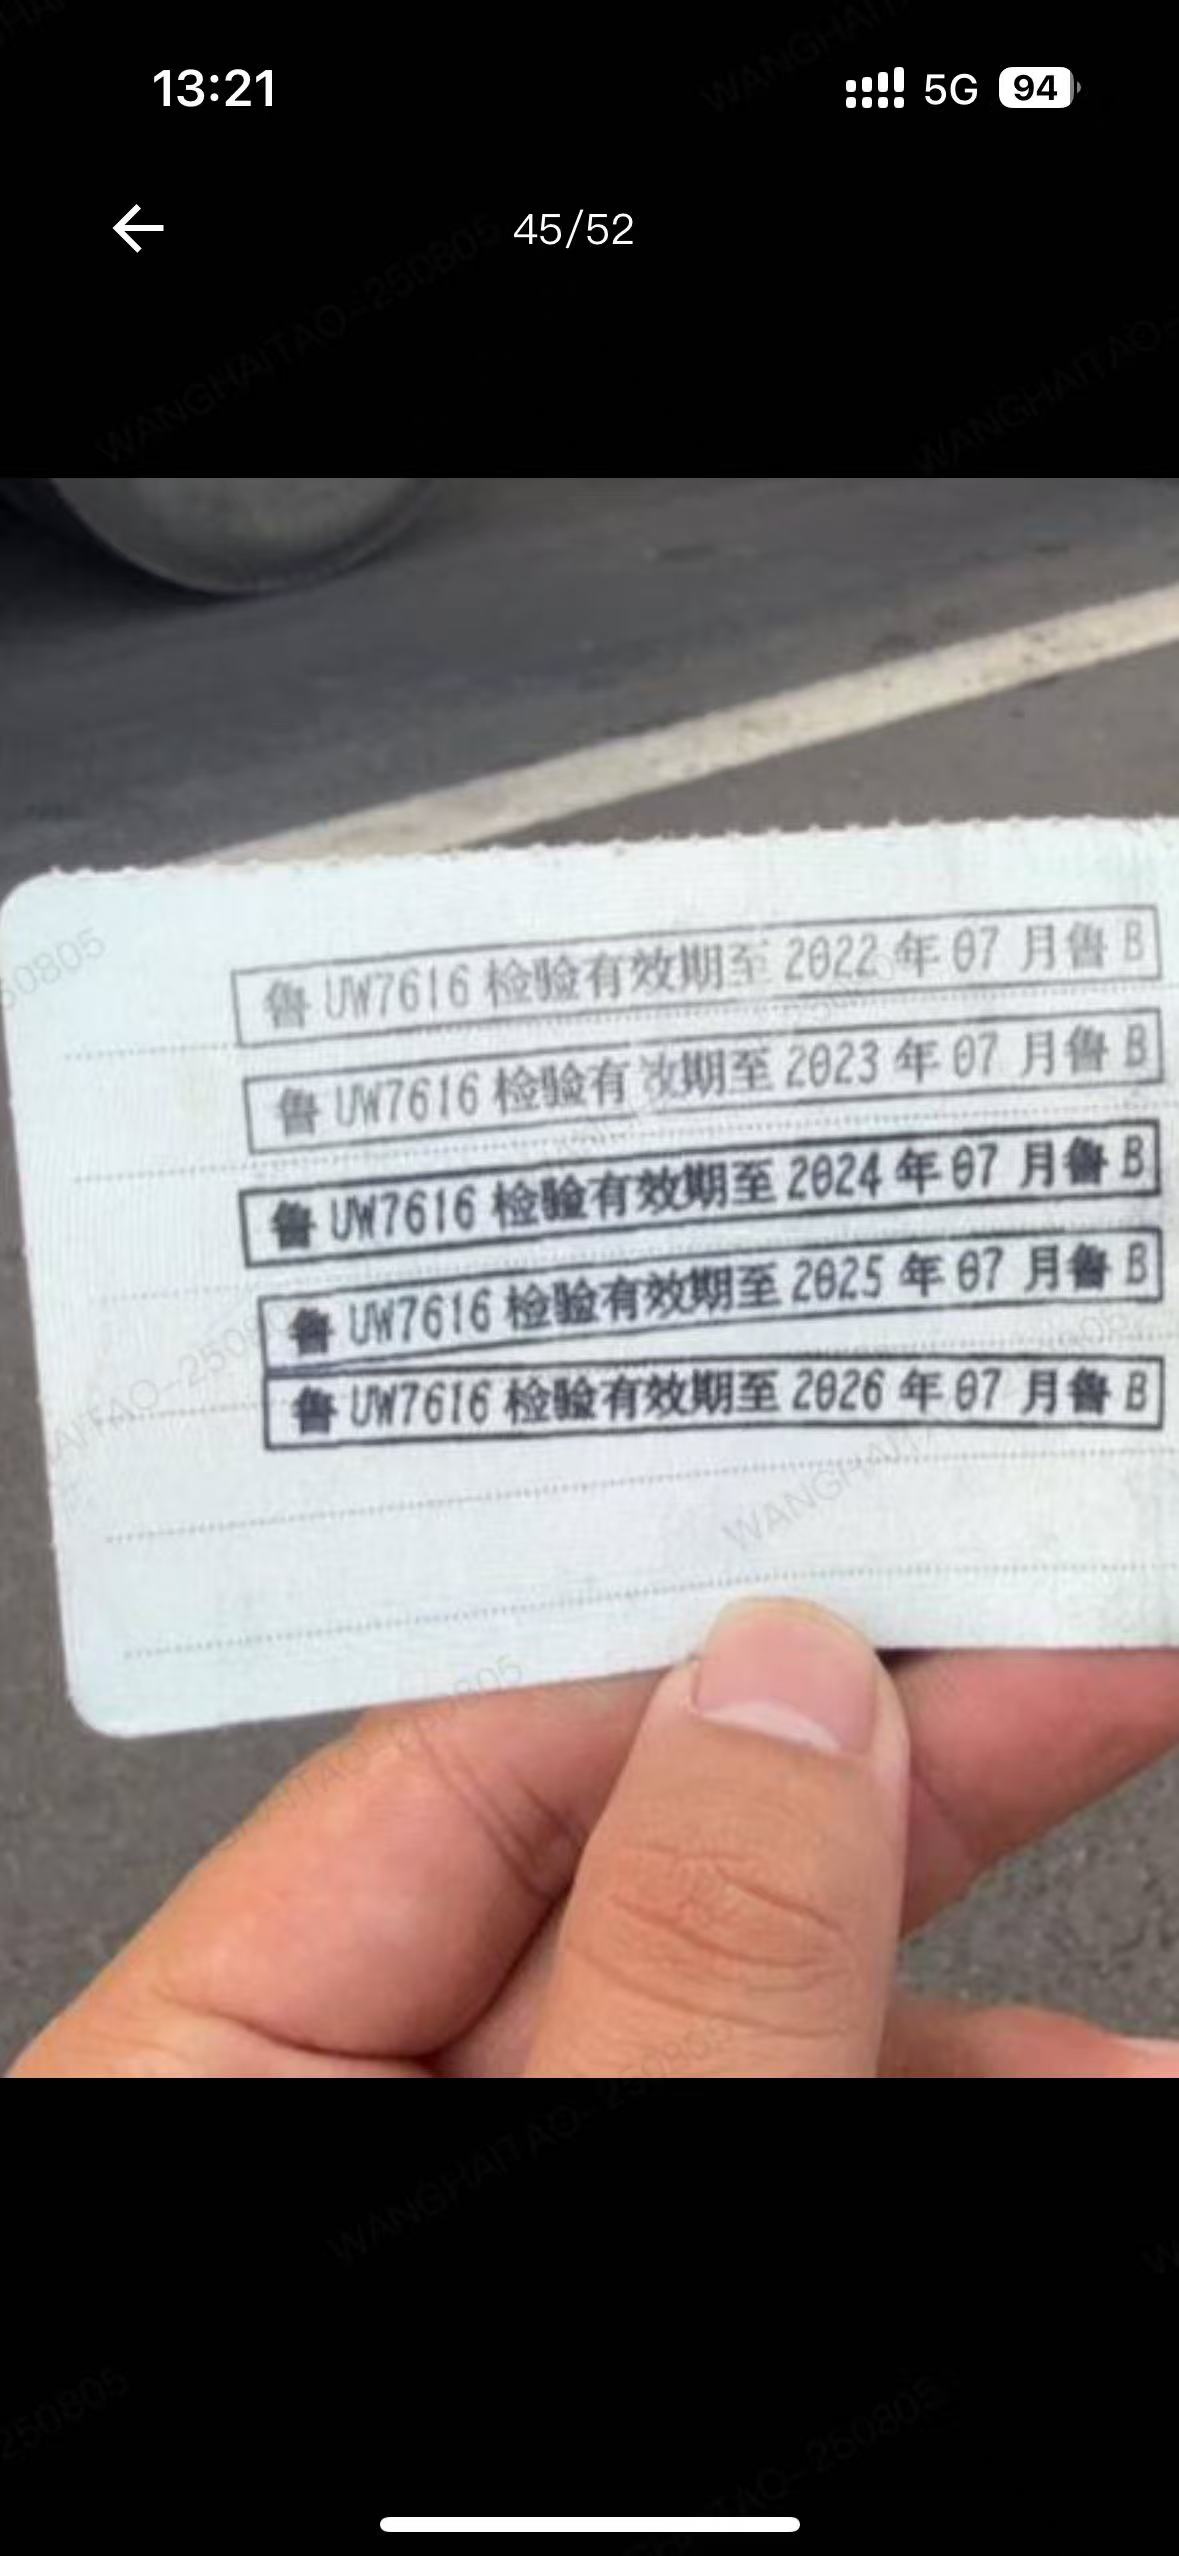 13:21 5G 94
45/52
WANGHAITAO-250805
鲁 UW7616 检验有效期至 2022 年 07 月鲁 B
鲁 UW7616 检验有效期至 2023 年 07 月鲁 B
鲁 UW7616 检验有效期至 2024 年 07 月鲁 B
鲁 UW7616 检验有效期至 2025 年 07 月鲁 B
鲁 UW7616 检验有效期至 2026 年 07 月鲁 B